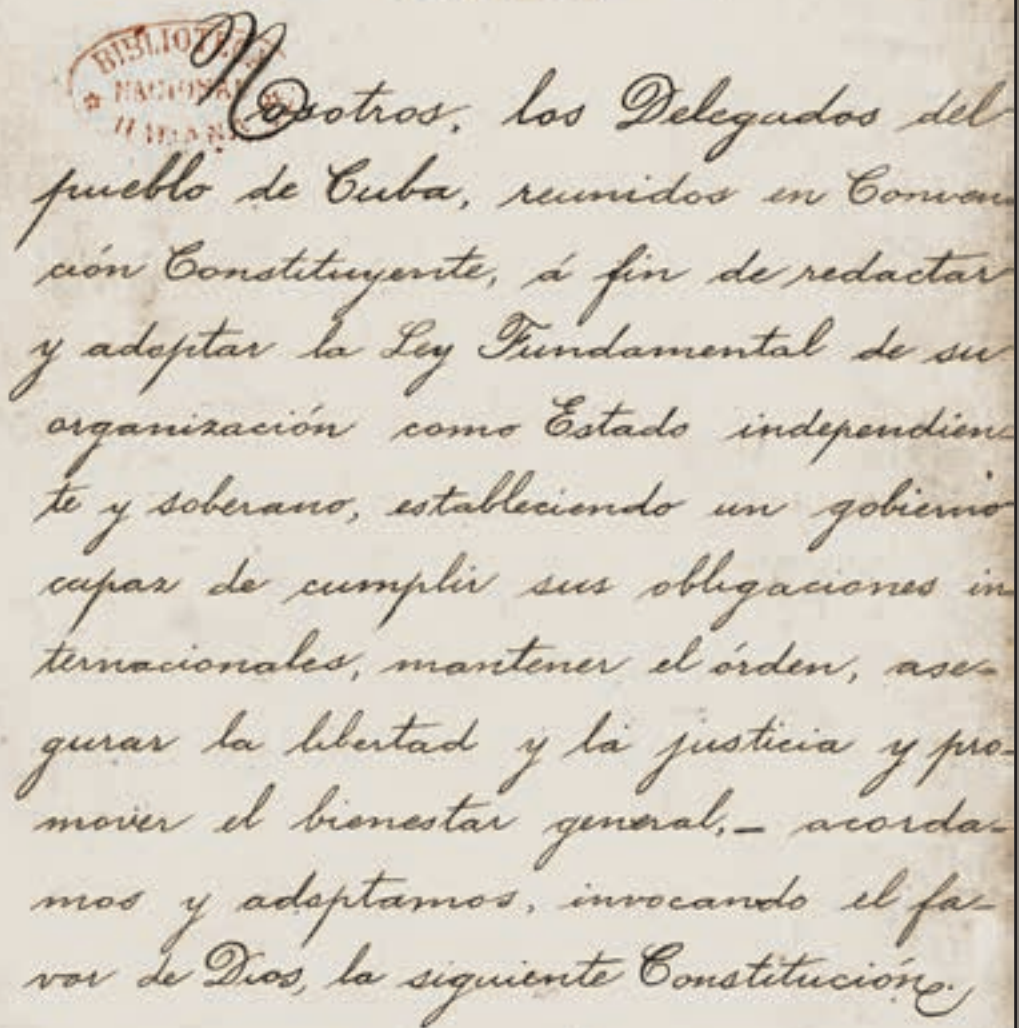 BIBLIOTECA
NACIONAL
HABANA
Nosotros, los Delegados del
pueblo de Cuba, reunidos en Conven-
ción Constituyente, á fin de redactar
y adoptar la Ley Fundamental de su
organización como Estado independien-
te y soberano, estableciendo un gobierno
capaz de cumplir sus obligaciones in-
ternacionales, mantener el órden, ase-
gurar la libertad y la justicia y pro-
mover el bienestar general,_ acorda-
mos y adoptamos, invocando el fa-
vor de Dios, la siguiente Constitución.